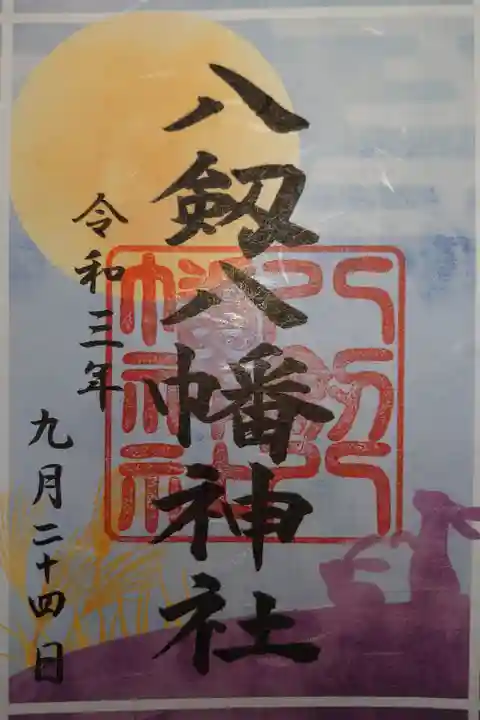 八剱八幡神社
令和三年
九月二十四日